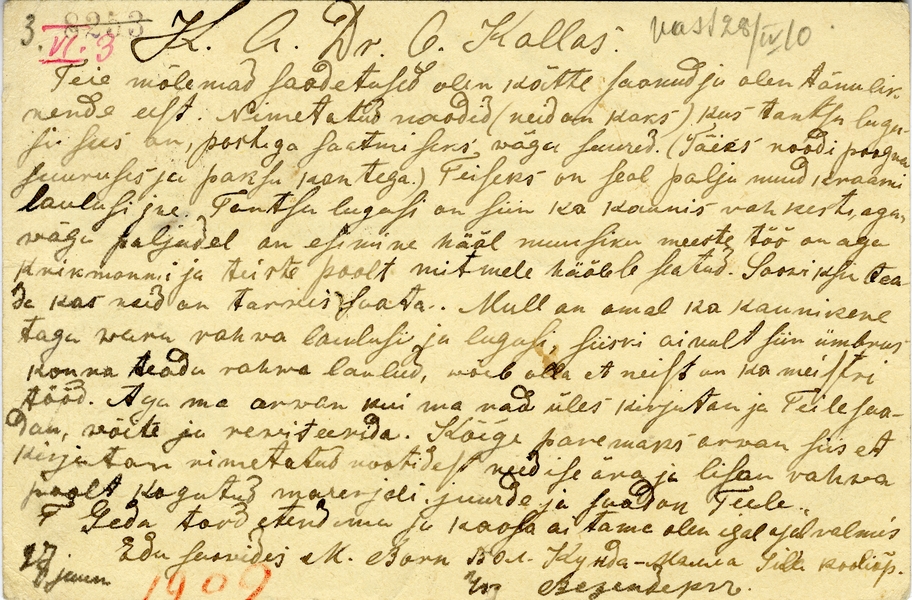 3. 8253 K. A. Dr. O. Kallas. vast 28/IV 10
VI. 3
Teie mõlemad saadetused olen kätte saanud ja olen tänulik
nende eest. Nimetatud noodid (neid on kaks) kus tantsu lugu-
si sees on, postiga saatmiseks wäga suured. (Täies noodi poogna
suuruses ja paksu kantega.) Teiseks on seal palju muud kraami
laulusi jne. Tantsu lugusi on siin ka kaunis rohkeste, aga
wäga paljudel on esimine hääl muusiku meeste töö on aga
Krikmanni ja teiste poolt mitmele häälele seatud. Sooviksu tea-
da kas neid on tarwis saata. Mull on omal ka kaunikene
tagawara rahwa laulusi ja lugusi, siiski ainult siin ümbrus
konna teada rahwa laulud, wõib olla et neist on ka meistri
tööd. Aga ma arwan kui ma nad üles kirjutan ja Teile saa-
dan, wõite ja rewiteerida. Kõige paremaks arwan siis et
kirjutan nimetatud nootidest needise ära ja lisan rahwa
poolt kogutud materjali juurde ja saadan Teile.
Seda tööd etendama ja kaasa aitama olen igal ajal walmis
Edu soowides M. Born Вол. Кунда-Малла Gilli kooliõp.
27. juun 1909 Везенберг